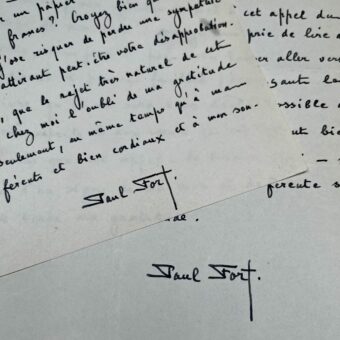 un papier
francs ? Croyez bien qu
j'ose risquer de perdre une sympathie
attirant peut-être votre désapprobation.
que le rejet très naturel de cet
chez moi l'oubli de ma gratitude
seulement, en même temps qu'à mon
férents et bien cordiaux et à mon son-
Paul Fort.
cet appel dan
prie de lire a
aller vers
sant la
ssible
t bien
férente s
Paul Fort.